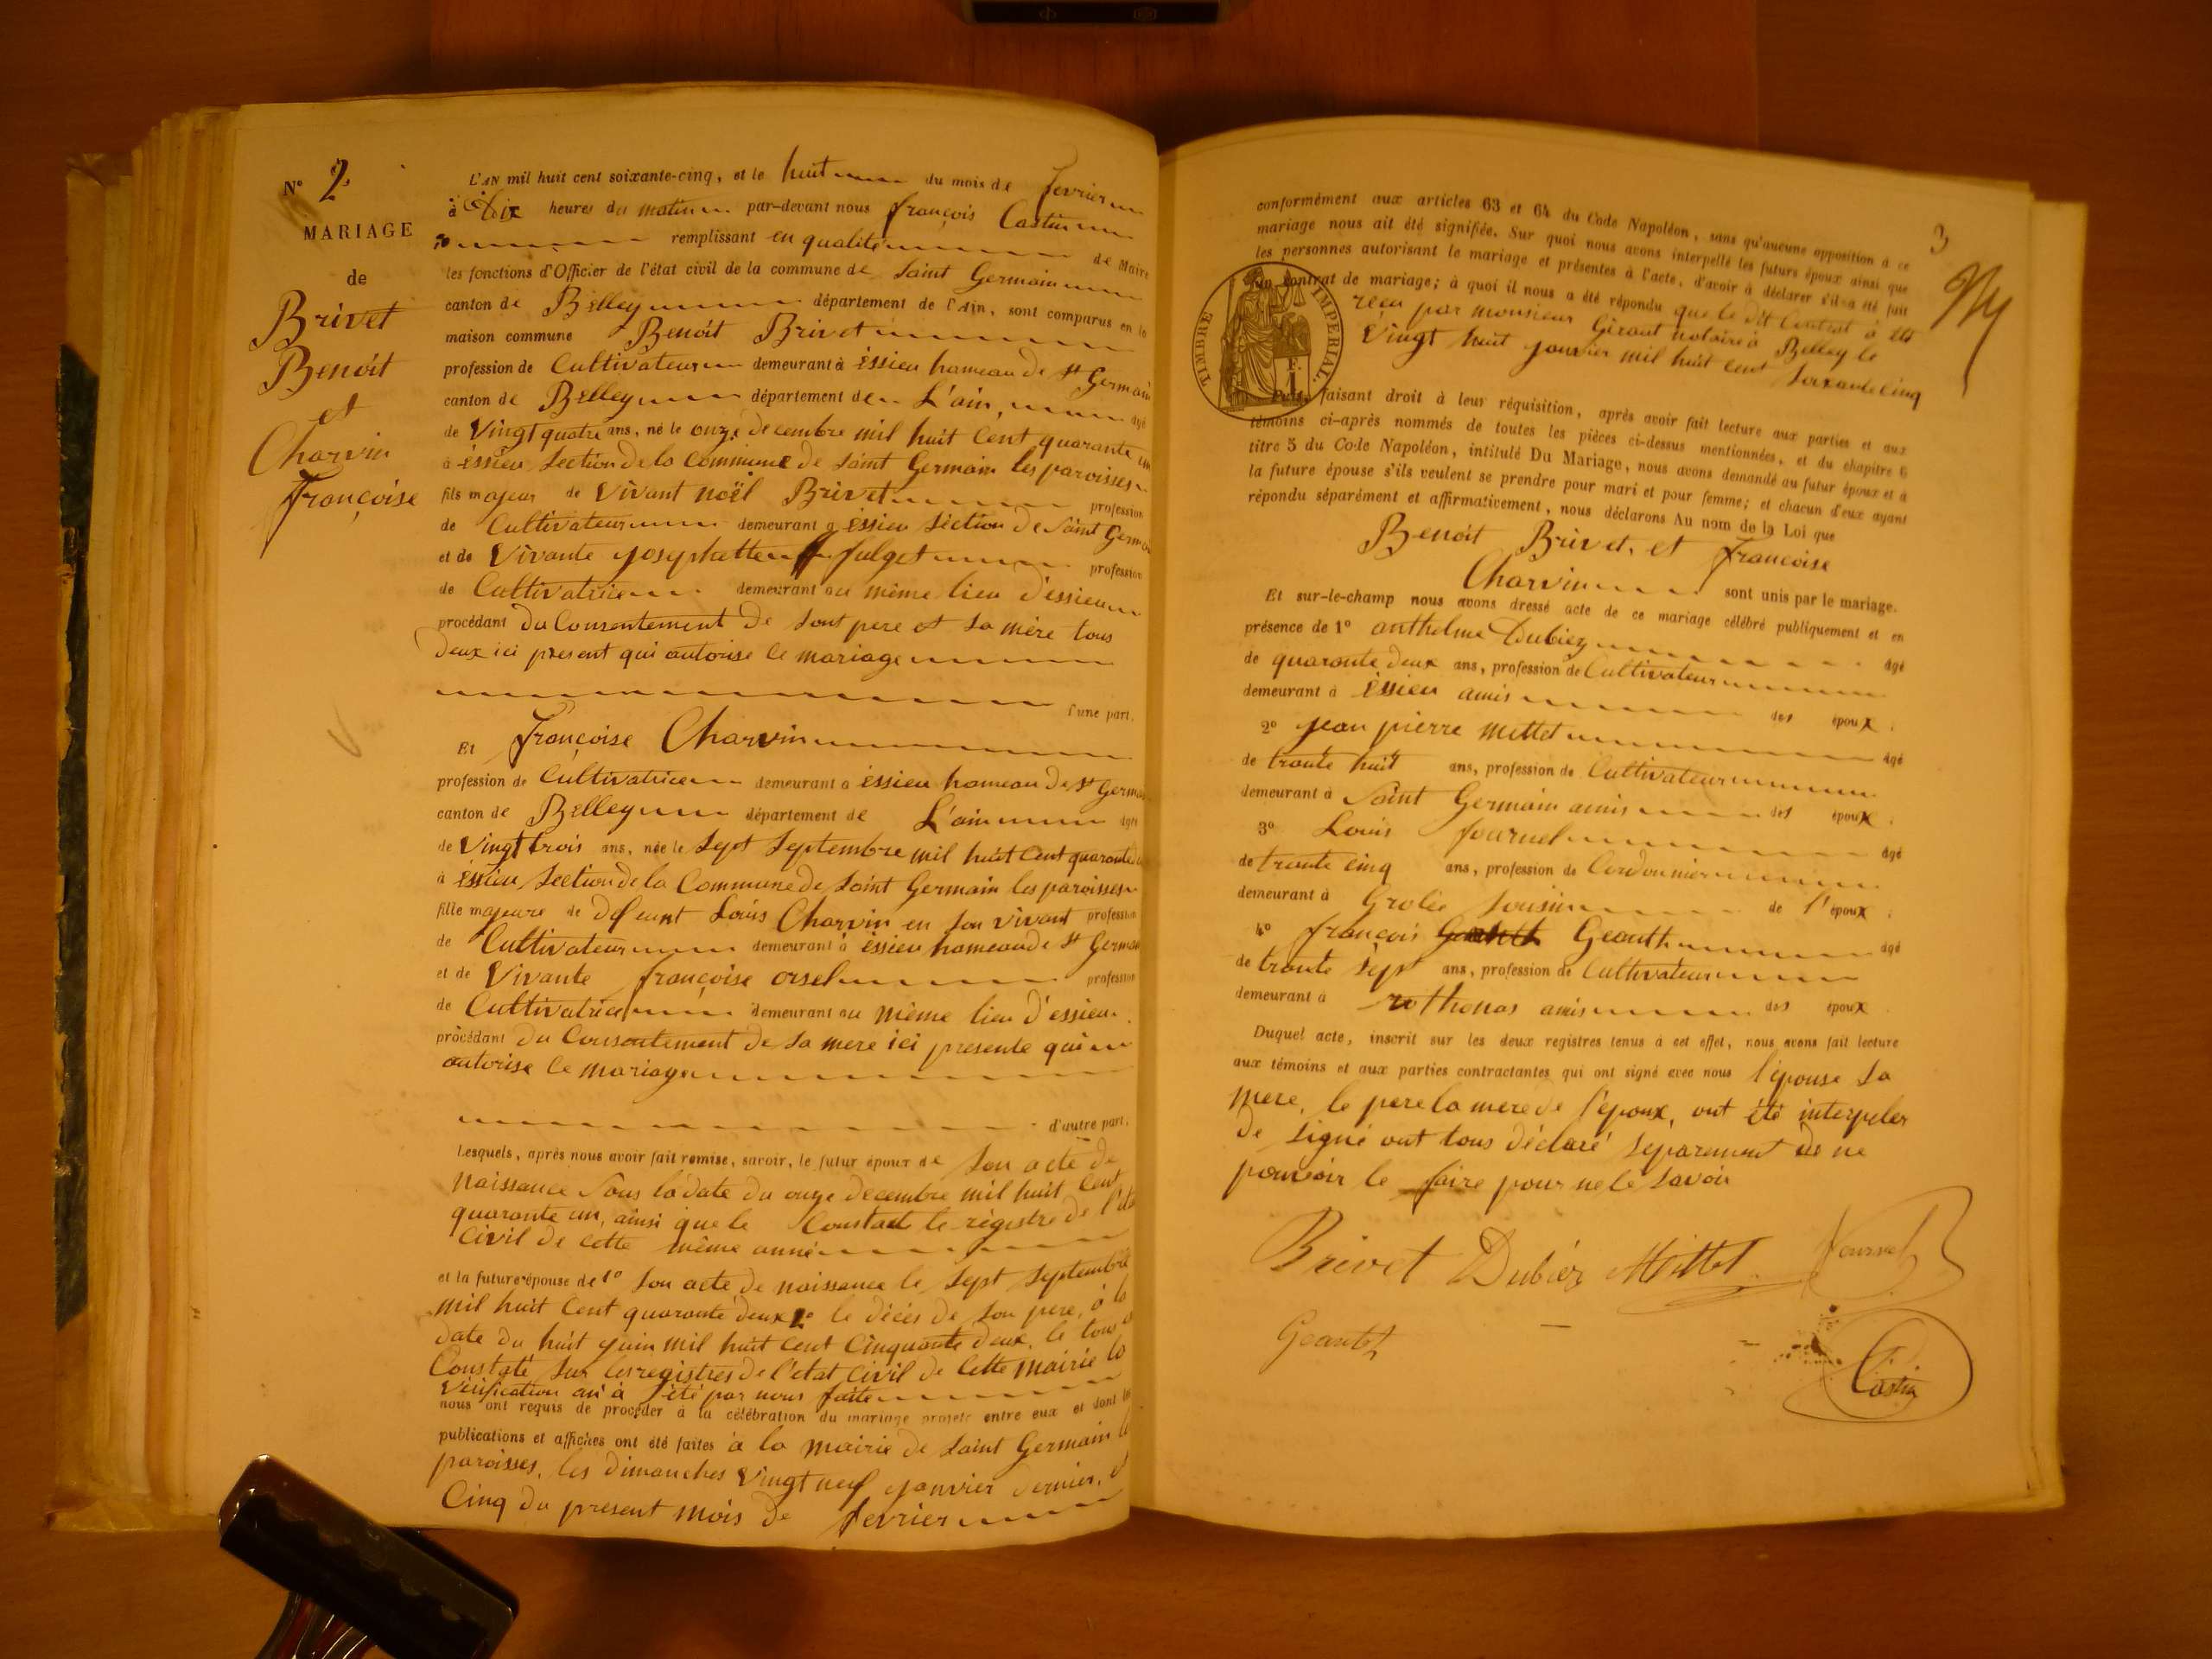 N° 2
MARIAGE
de
Brivet
Benoit
et
Charvin
Françoise
L'AN mil huit cent soixante-cinq, et le huit du mois de fevrier
à Dix heures du matin par-devant nous françois Castin
remplissant en qualité de Maire
les fonctions d'Officier de l'état civil de la commune de Saint Germain
canton de Belley département de l'Ain, sont comparus en la
maison commune Benoit Brivet
profession de Cultivateur demeurant à éssieu hameau de St Germain
canton de Belley département de L'ain, âgé
de Vingt quatre ans, né le onze decembre mil huit Cent quarante un
à éssieu Section de la Commune de Saint Germain les paroisses
fils majeur de Vivant noël Brivet profession
de Cultivateur demeurant à éssieu Section de Saint Germain
et de Vivante josephatte fulget profession
de Cultivatrice demeurant au même lieu d'éssieu
procédant du Consentement de Sont pere et Sa mère tous
deux ici present qui autorise le mariage
l'une part.
Et Françoise Charvin
profession de Cultivatrice demeurant à éssieu hameau de St Germain
canton de Belley département de L'ain âgée
de Vingt trois ans, née le Sept Septembre mil huit Cent quarante
à éssieu Section de la Commune de Saint Germain les paroisses
fille majeure de défunt Louis Charvin en Son vivant profession
de Cultivateur demeurant à éssieu hameau de St Germain
et de Vivante françoise orsel profession
de Cultivatrice demeurant au même lieu d'éssieu
procédant du Consentement de Sa mere ici presente qui
autorise le mariage
d'autre part.
Lesquels, après nous avoir fait remise, savoir, le futur époux de Son acte de
naissance Sous la date du onze decembre mil huit Cent
quarante un, ainsi que le Constate le régistre de l'état
Civil de cette même anné
et la future épouse de 1° Son acte de naissance le Sept Septembre
mil huit Cent quarante deux 2° le décès de Son pere, à la
date du huit juin mil huit cent Cinquante deux, le tous
Constaté Sur les registres de l'état Civil de Cette mairie la
Vérification an à été par nous faite
nous ont requis de procéder à la célébration du mariage projeté entre eux et dont les
publications et affiches ont été faites à la mairie de Saint Germain les
paroisses, les dimanches Vingt neuf janvier dernier, et
Cinq du present mois de fevrier
3
conformément aux articles 63 et 64 du Code Napoléon, sans qu'aucune opposition à ce
mariage nous ait été signifiée. Sur quoi nous avons interpellé les futurs époux ainsi que
les personnes autorisant le mariage et présentes à l'acte, d'avoir à déclarer s'il a été fait
un contrat de mariage; à quoi il nous a été répondu que le dit Contrat à été
recu par monsieur Giraut notaire à Belley le
Vingt huit janvier mil huit cent Soixante cinq
TIMBRE IMPÉRIAL.
F. 1
Puis, faisant droit à leur réquisition, après avoir fait lecture aux parties et aux
témoins ci-après nommés de toutes les pièces ci-dessus mentionnées, et du chapitre 6
titre 5 du Code Napoléon, intitulé Du Mariage, nous avons demandé au futur époux et à
la future épouse s'ils veulent se prendre pour mari et pour femme; et chacun d'eux ayant
répondu séparément et affirmativement, nous déclarons Au nom de la Loi que
Benoit Brivet, et Françoise
Charvin sont unis par le mariage.
Et sur-le-champ nous avons dressé acte de ce mariage célébré publiquement et en
présence de 1° anthelme Dubiez âgé
de quarante deux ans, profession de Cultivateur
demeurant à éssieu amis des époux.
2° jean pierre mettet âgé
de trante huit ans, profession de Cultivateur
demeurant à Saint Germain amis des époux.
3° Louis fournel âgé
de trante cinq ans, profession de Cordounier
demeurant à Grolée Sousin de l'époux.
4° françois Geanth âgé
de trante Sept ans, profession de Cultivateur
demeurant à rothonos amis des époux
Duquel acte, inscrit sur les deux registres tenus à cet effet, nous avons fait lecture
aux témoins et aux parties contractantes qui ont signé avec nous l'épouse Sa
mere, le pere la mere de l'époux, ont été interpeler
de Signé ont tous déclaré Separement de ne
pouvoir le faire pour ne le Savoir
Brivet Dubiéz Mittet Fournel
Geanth
Castin